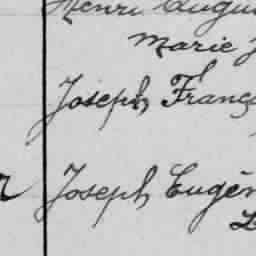 Henri Augu
Marie J
Joseph Franç
Joseph Eugèn